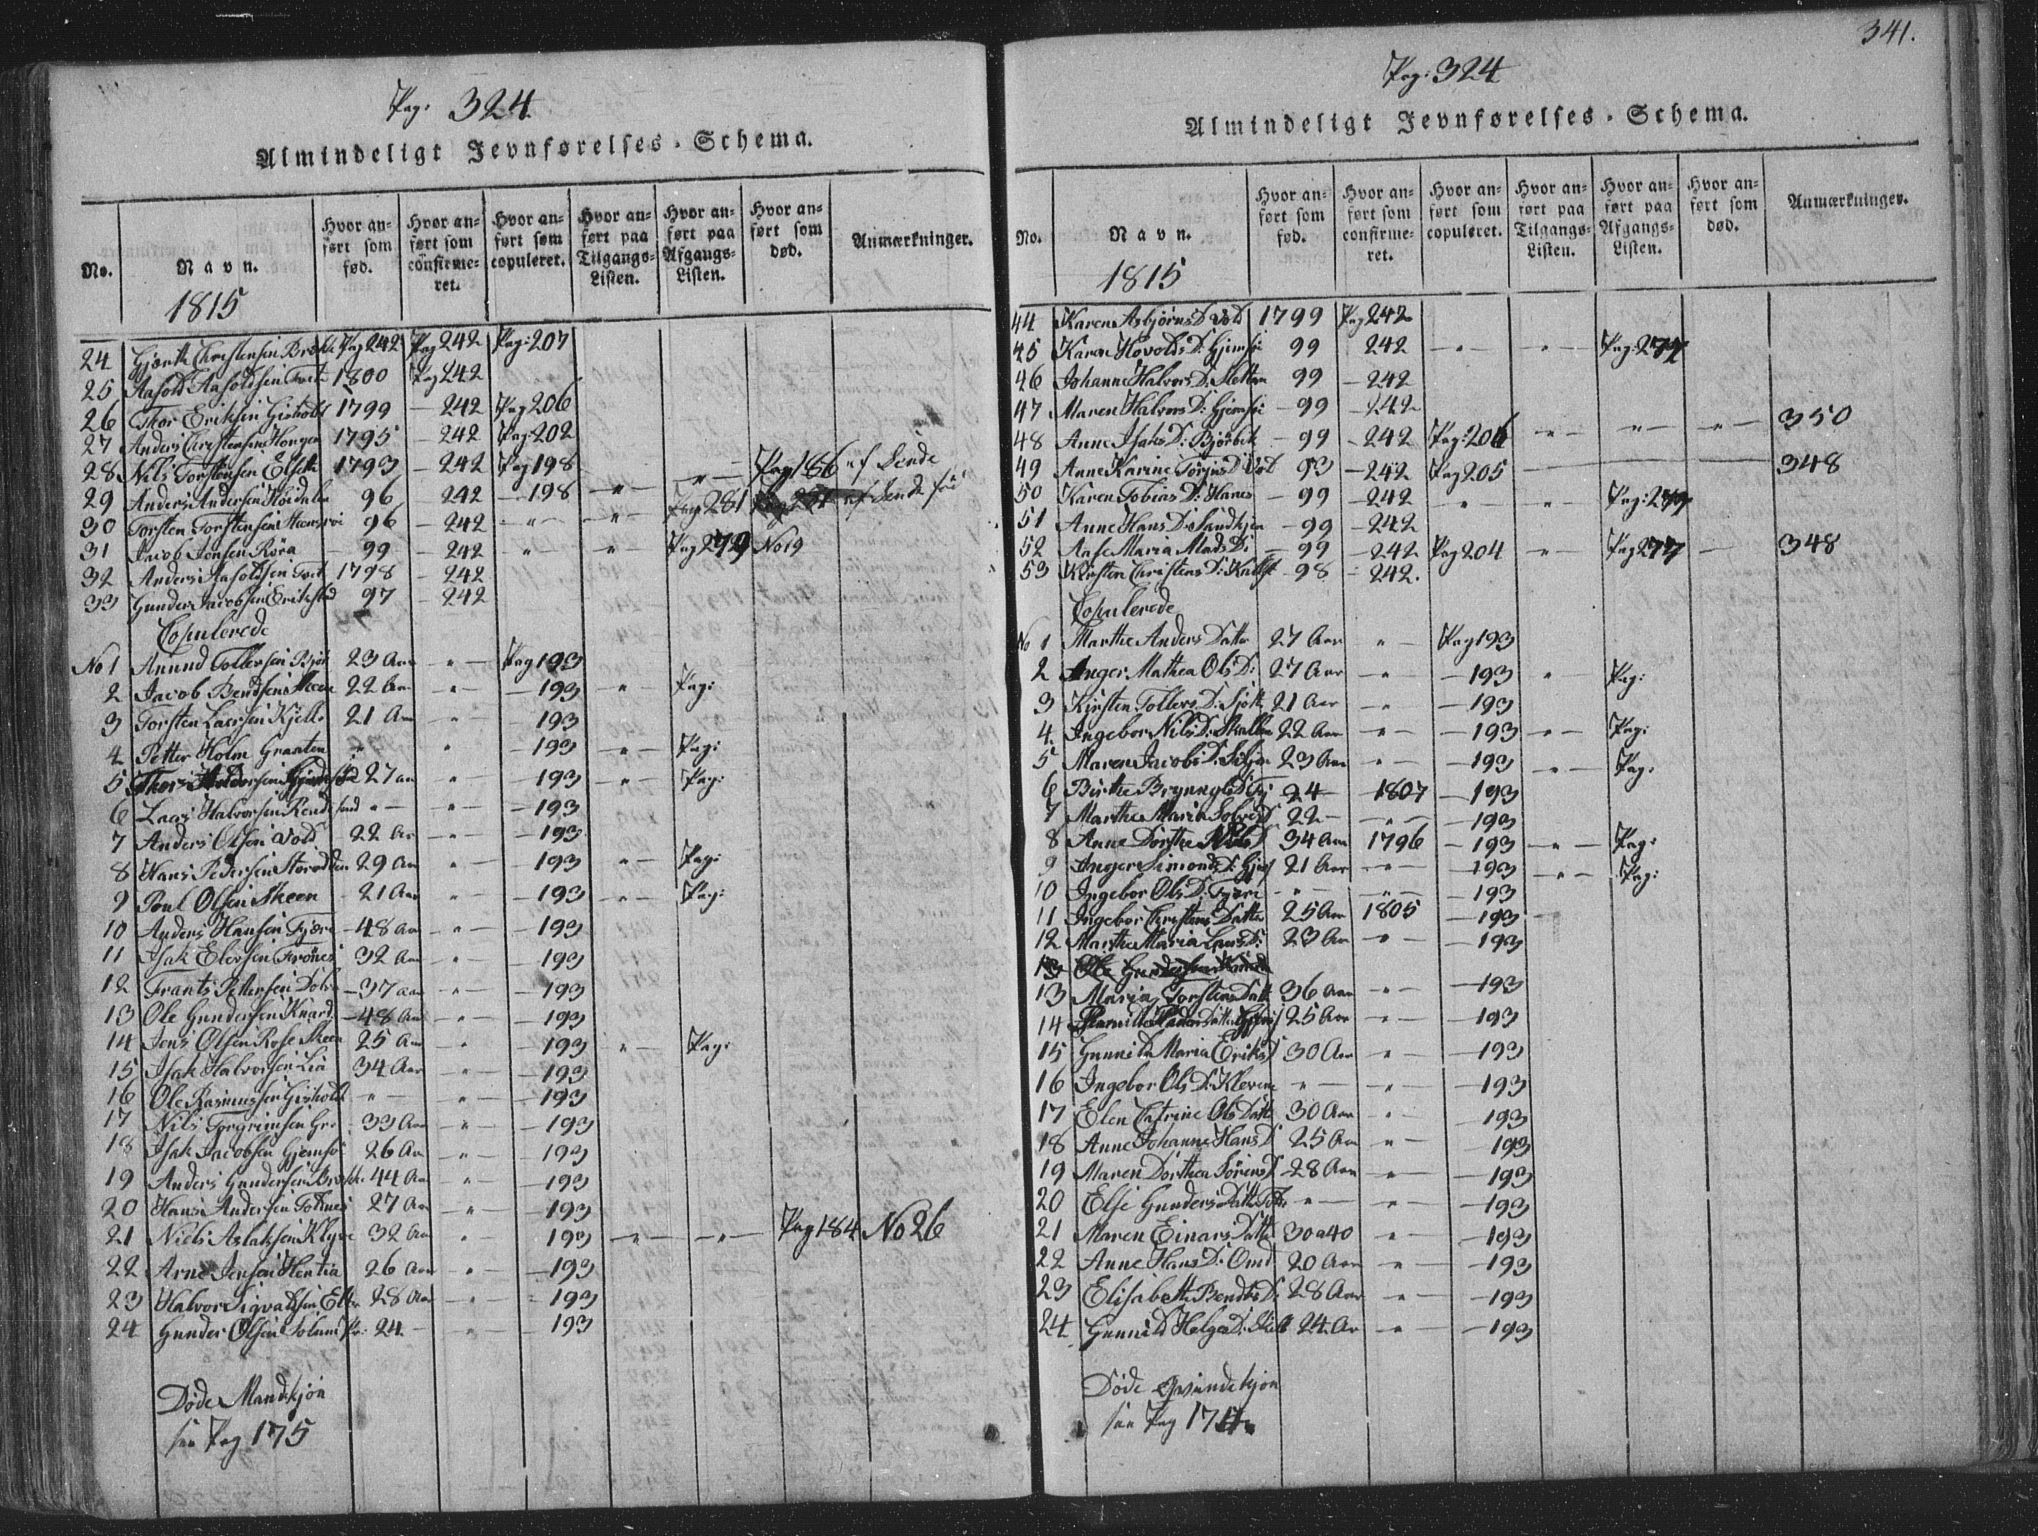 341.
Pag: 324
Almindeligt Jevnførelses-Schema.
No.
Navn.
1815
Hvor anført som fød.
Hvor anført som confirmeret.
Hvor anført som copuleret.
Hvor anført paa Tilgangs-Listen.
Hvor anført paa Afgangs-Listen.
Hvor anført som død.
Anmærkninger.
24 Christensen Pag 242 Pag 242 Pag: 207
25 Aasold Aasoldsen 1800 Pag 242
26 Thor Eriksen Gisholt 1799 — 242 Pag 206
27 Anders Christensen 1795 — 242 Pag: 202
28 Nils Torstensen 1793 — 242 Pag 198 Pag 186
29 Anders Andersen 96 242 — 198 " — Pag 281
30 Torsten Torstensen 96 — 242 " "
31 Jacob Jonsen Röra — 99 — 242 " " Pag 279 No 19
32 Anders Aasoldsen 1798 — 242
33 Gunder Jacobsen 97 — 242
Copulerede
No 1 Anund Tollefsen 23 Aar " Pag 193
2 Jacob Bendtsen Skeen 22 Aar " — 193 " Pag:
3 Torsten Larsen 21 Aar " — 193
4 Petter Holm Graaten " " — 193 " Pag:
5 27 aar " — 193 " Pag:
6 Lars Halvorsen " " — 193
7 Anders Olsen Vold 22 Aar " — 193
8 Hans Pedersen 29 Aar " 193 " Pag:
9 Poul Olsen Skeen 21 Aar " — 193 " Pag:
10 Anders Hansen Fjære — 48 Aar " — 193
11 Isak Elevsen 32 Aar " — 193
12 Frants Pettersen — 37 aar " — 193
13 Ole Gundersen Knard. — 48 Aar " — 193
14 Jens Olsen Rose Skeen 25 Aar " — 193 " Pag:
15 Isak Halvorsen Lia 34 Aar " — 193
16 Ole Rasmussen Gisholt " " — 193
17 Nils 33 Aar " — 193
18 Isak Jacobsen Gjemsö 26 Aar " 193
19 Anders Gundersen 44 Aar " — 193
20 Hans Andersen Tolnes 27 Aar " — 193
21 Niels Aslaksen Klyve 32 Aar " 193 " " Pag 184 No 26
22 Arne Jensen 26 Aar " — 193
23 Halvor Sigvaldsen 28 Aar " 193
24 Gunder Olsen 24 — " 193
Døde Mandkjön
see Pag 175
Pag: 324
Almindeligt Jevnførelses-Schema.
No.
Navn.
1815
Hvor anført som fød.
Hvor anført som confirmeret.
Hvor anført som copuleret.
Hvor anført paa Tilgangs-Listen.
Hvor anført paa Afgangs-Listen.
Hvor anført som død.
Anmærkninger.
44 Karen Asbjörns D. Vold 1799 Pag 242
45 Karen Hovolds D: Gjemsö 99 242 " " Pag: 277
46 Johanne Halvors D: Sletten 99 — 242
47 Maren Halvors D: Gjemsö — 99 — 242
48 Anne Isaks D: — 99 — 242 Pag: 206 " " " 350
49 Anne Karine D Vold 93 — 242 Pag 205 348
50 Karen Tobias D: Hanes — 99 — 242 " " Pag:
51 Anne Hans D: — 99 — 242
52 Aase Maria Mads D: — 99 — 242 Pag 204 " Pag 277 — 348
53 Kirsten Christens D: — 98 — 242.
Copulerede
No 1 Marthe Anders Datter 27 Aar " Pag 193
2 Inger Mathea Ols D: 27 Aar " — 193 " Pag:
3 Kirsten Tollefs D: 21 Aar " — 193
4. Ingebor Nils D: 22 Aar " — 193 " Pag:
5 Maren Jacobs D: 23 Aar " — 193 " Pag:
6 Birthe 24 — 1807 — 193
7 Marthe Maria 22 — " — 193
8 Anne Dorthe Nils D 34 Aar 1796 — 193 " Pag:
9 Inger Simons D: 21 Aar " — 193 " Pag:
10 Ingebor Ols D: Fjære " " — 193
11 Ingebor Christens Datter 25 Aar 1805 — 193
12 Marthe Maria Lars D: 23 Aar " — 193
13 Maria Torstens Datt 36 Aar " — 193
14 25 Aar " — 193
15 Gunnild Maria Eriks D 30 Aar " — 193
16 Ingebor Ols D: Kleven " " — 193
17 Elen Catrine Ols Datt 30 Aar " 193
18 Anne Johanne Hans D 25 Aar " 193
19 Maren Dorthea Sörens D 28 Aar " — 193
20 Else Gunders Datt " " — 193
21 Maren Einars Datter 30 a 40 " — 193
22 Anne Hans D: 20 Aar " — 193
23 Elisabeth Bendts D: 28 Aar " — 193
24. Gunnild Helge D: 24 Aar " — 193
Døde Qvindekjön
see Pag